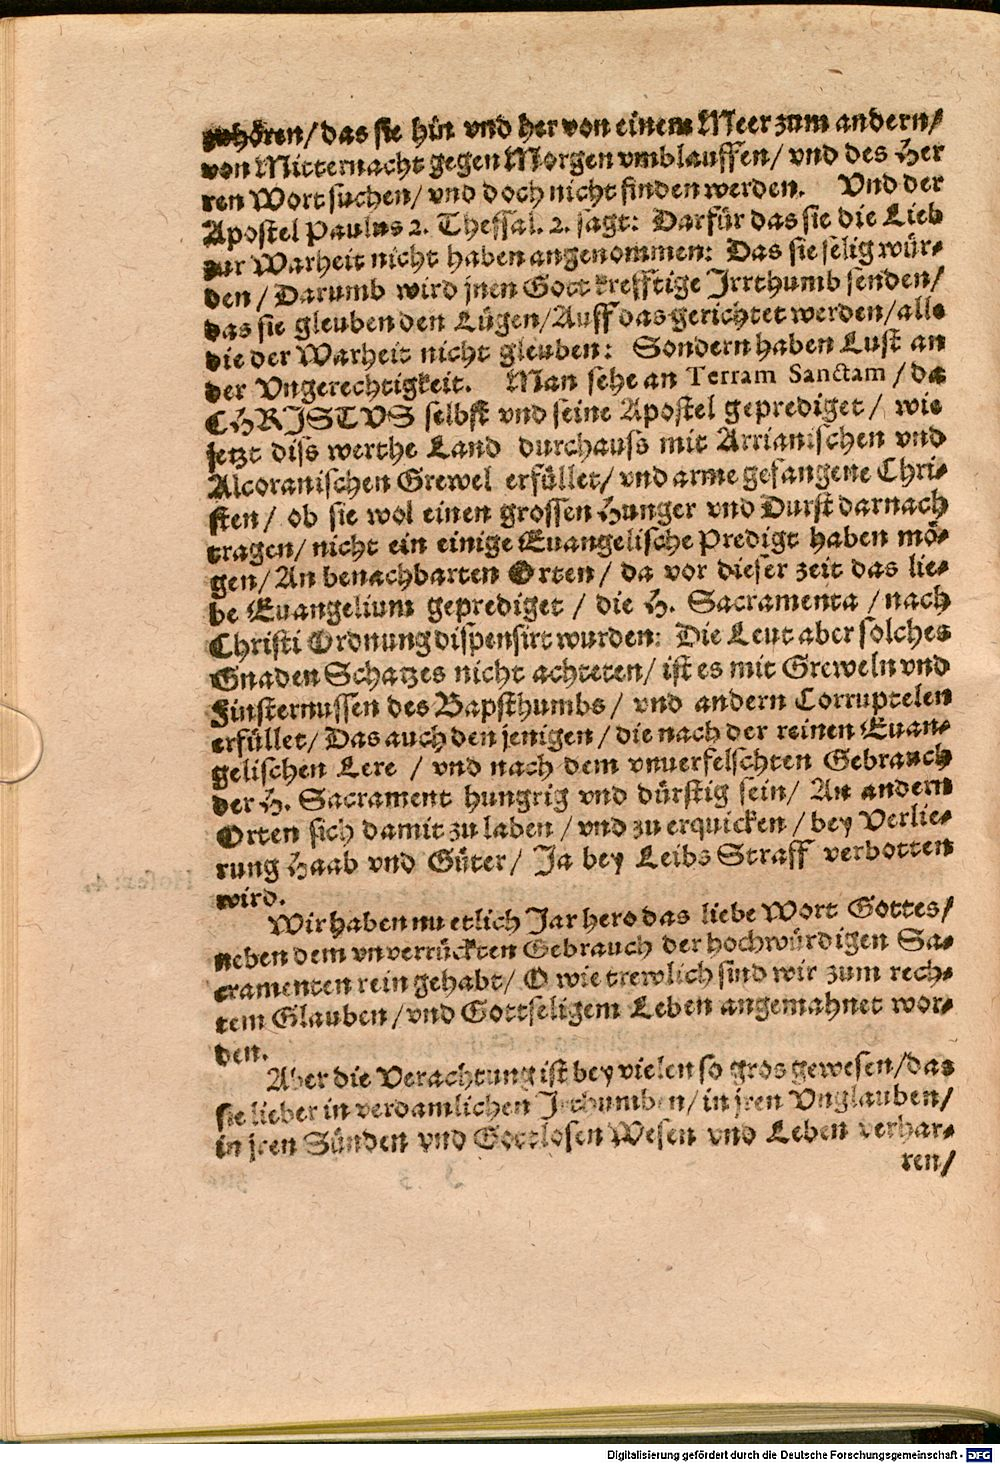 zuhören/ das sie hin vnd her von einem Meer zum andern/
von Mitternacht gegen Morgen vmblauffen/ vnd des Her
ren Wort suchen/ vnd doch nicht finden werden. Vnd der
Apostel Paulus 2. Thessal. 2. sagt: Darfür das sie die Lieb
zur Warheit nicht haben angenommen: Das sie selig wür-
den/ Darumb wird jnen Gott krefftige Jrrthumb senden/
das sie gleuben den Lügen/ Auff das gerichtet werden/ alle
die der Warheit nicht gleuben: Sondern haben Lust an
der Vngerechtigkeit. Man sehe an Terram Sanctam/ da
CHRISTVS selbst vnd seine Apostel geprediget/ wie
jetzt diss werthe Land durchauss mit Arrianischen vnd
Alcoranischen Grewel erfüllet/ vnd arme gefangene Chri-
sten/ ob sie wol einen grossen Hunger vnd Durst darnach
tragen/ nicht ein einige Euangelische Predigt haben mö-
gen/ An benachbarten Orten/ da vor dieser zeit das lie-
be Euangelium geprediget/ die H. Sacramenta/ nach
Christi Ordnung dispensirt wurden: Die Leut aber solches
Gnaden Schatzes nicht achteten/ ist es mit Greweln vnd
Finsternussen des Bapsthumbs/ vnd andern Corruptelen
erfüllet/ Das auch den jenigen/ die nach der reinen Euan-
gelischen Lere/ vnd nach dem vnuerfelschten Gebrauch
der H. Sacrament hungrig vnd dürstig sein/ An andern
Orten sich damit zu laben/ vnd zu erquicken/ bey Verlie-
rung Haab vnd Güter/ Ja bey Leibs Straff verbotten
wird.
Wir haben nu etlich Jar hero das liebe Wort Gottes/
neben dem vnverrückten Gebrauch der hochwürdigen Sa-
cramenten rein gehabt/ O wie trewlich sind wir zum rech-
tem Glauben/ vnd Gottseligem Leben angemahnet wor-
den.
Aber die Verachtung ist bey vielen so gros gewesen/ das
sie lieber in verdamlichen Jrthumben/ in jren Vnglauben/
in jren Sünden vnd Gottlosen Wesen vnd Leben verhar-
ren/
Digitalisierung gefördert durch die Deutsche Forschungsgemeinschaft - DFG